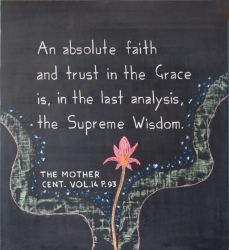 An absolute faith
and trust in the Grace
is, in the last analysis,
the Supreme Wisdom.
THE MOTHER
CENT. VOL.14 P.93